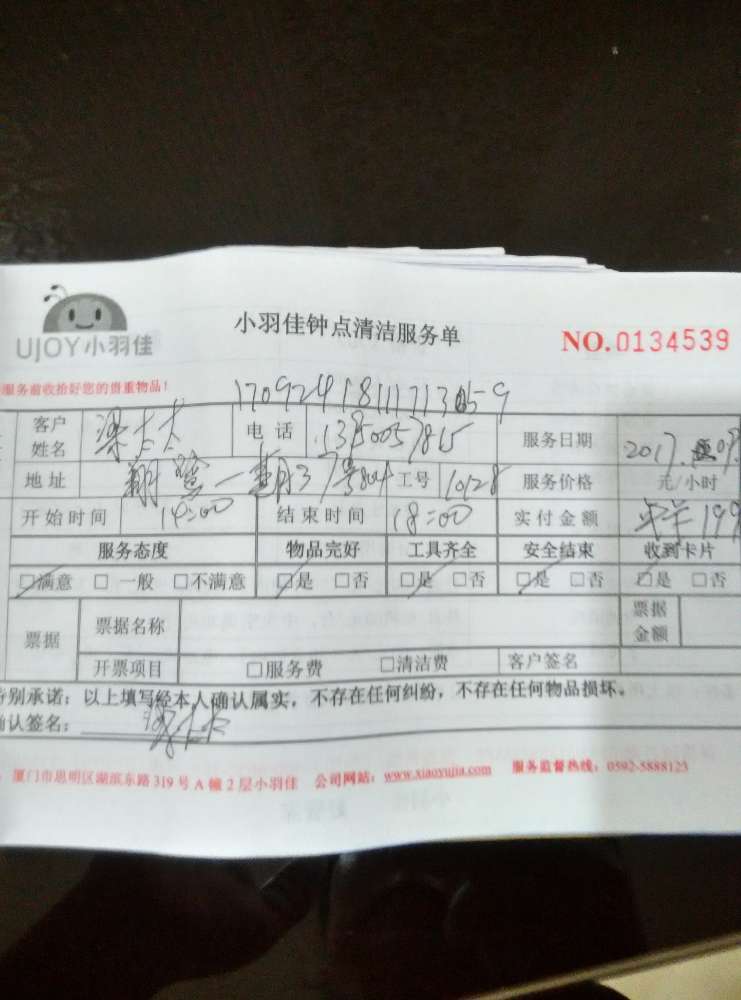 UJOY小羽佳
小羽佳钟点清洁服务单
NO.0134539
服务前收拾好您的贵重物品！
客户姓名 梁太太 电话 服务日期 2017.
地址 工号 10128 服务价格 元/小时
开始时间 14:00 结束时间 18:00 实付金额 199
服务态度 物品完好 工具齐全 安全结束 收到卡片
□满意 □一般 □不满意 □是 □否 □是 □否 □是 □否 □是 □否
票据 票据名称 票据金额
开票项目 □服务费 □清洁费 客户签名
特别承诺：以上填写经本人确认属实，不存在任何纠纷，不存在任何物品损坏。
确认签名： 梁太太
厦门市思明区湖滨东路319号A幢2层小羽佳 公司网站：www.xiaoyujia.com 服务监督热线：0592-5888123